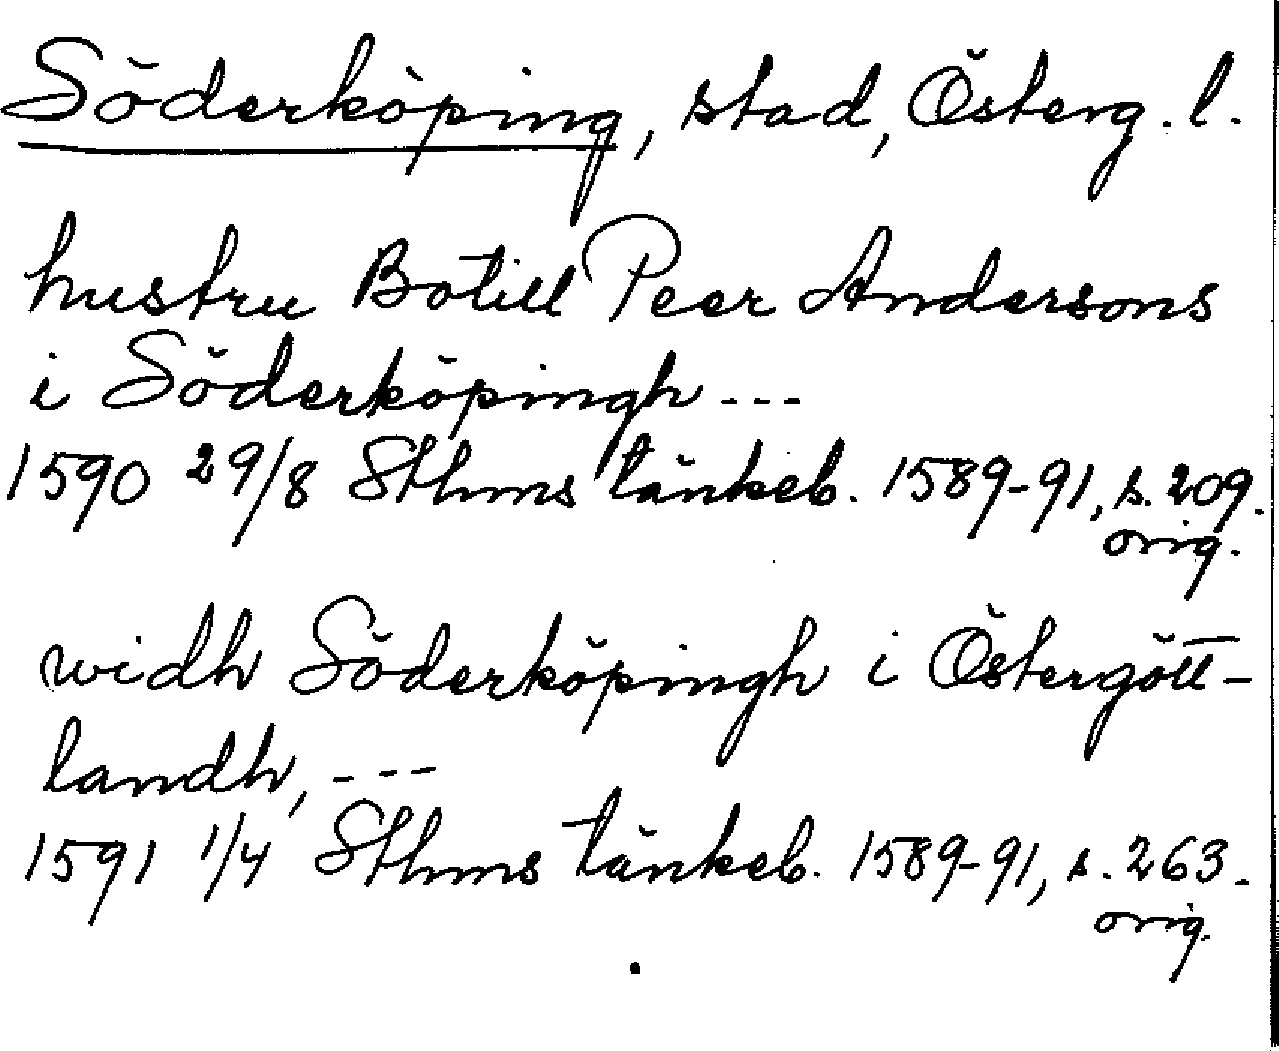 Söderköping, stad, Österg. l.
hustru Botill Peer Andersons
i Söderköpingh ---
1590 29/8 Sthms tänkeb. 1589-91, s. 209.
orig.
widh Söderköpingh i Östergött-
landh, ---
1591 1/4 Sthms tänkeb. 1589-91, s. 263.
orig.